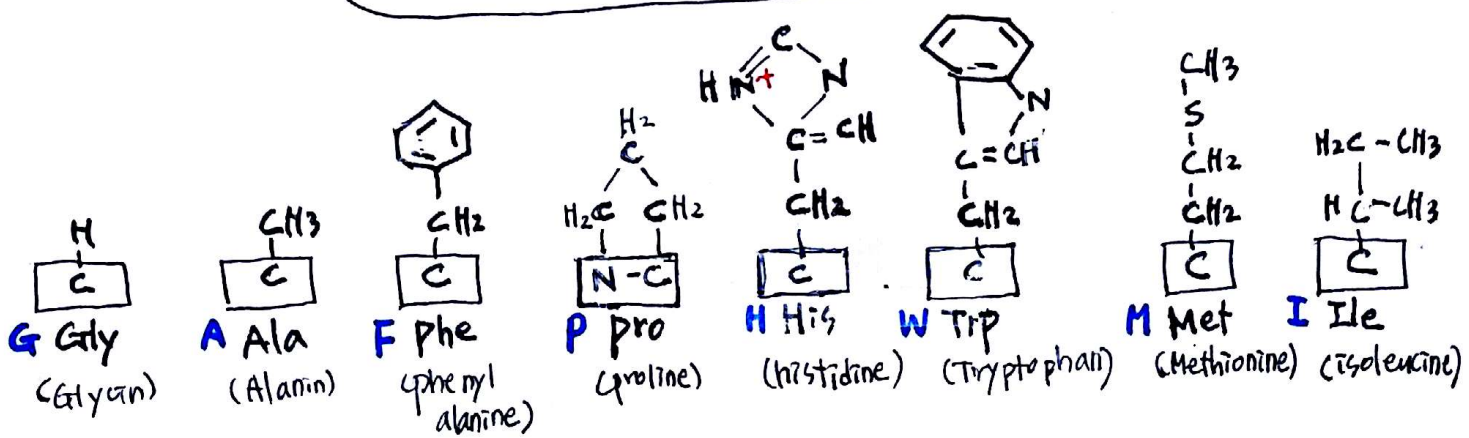 H
C
G Gly
(Glycin)
CH3
C
A Ala
(Alanin)
CH2
C
F phe
(phenyl
alanine)
H2
C
H2C CH2
N-C
P pro
(proline)
C
HN+ N
C=CH
CH2
C
H His
(histidine)
N
C=CH
CH2
C
W Trp
(Tryptophan)
CH3
S
CH2
CH2
C
M Met
(Methionine)
H2C-CH3
HC-CH3
C
I Ile
(isoleucine)